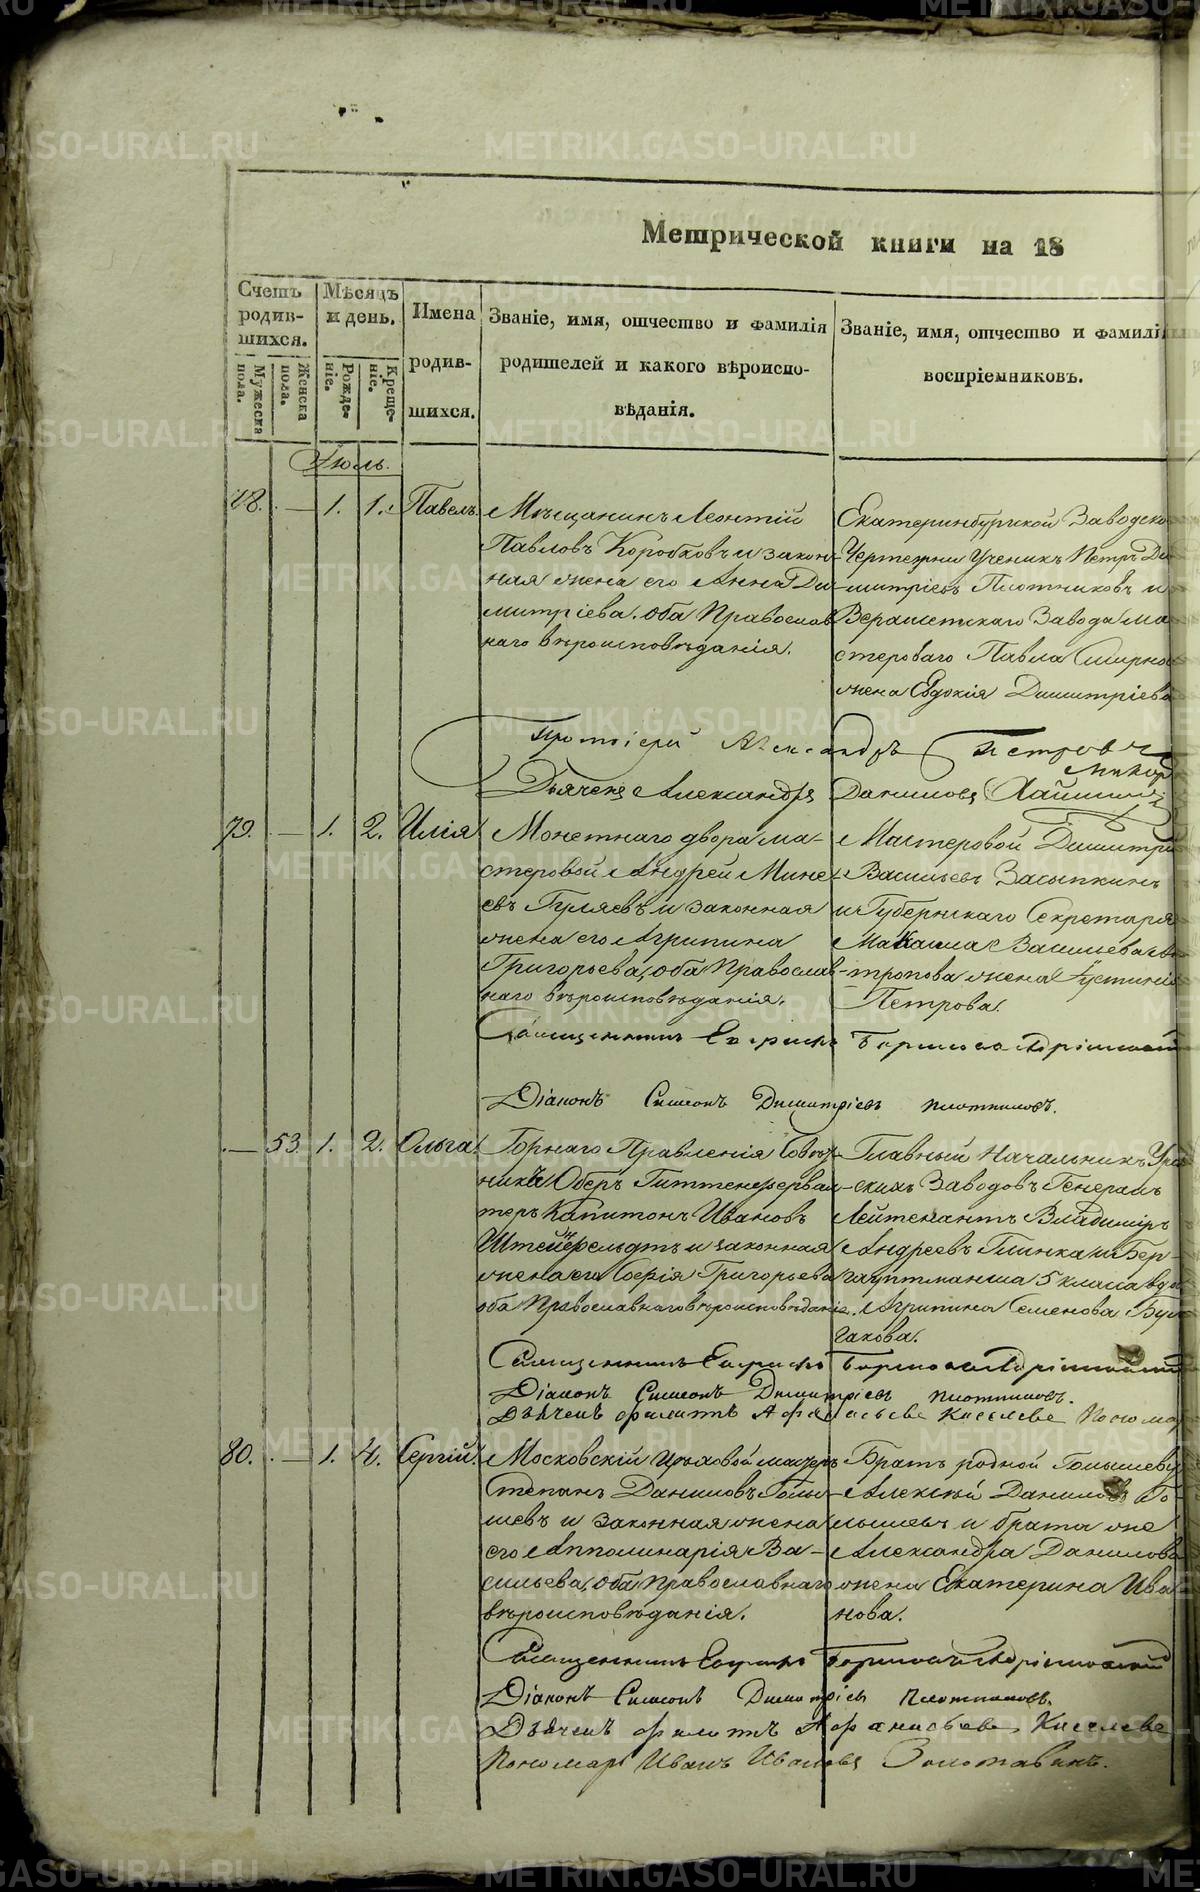 Метрической книги на 18
Счетъ родив-шихся.
Мужеска пола.
Женска пола.
Мѣсяцъ и день.
Рожде-ніе.
Креще-ніе.
Имена родив-шихся.
Званіе, имя, отчество и фамилія
родителей и какого вѣроиспо-
вѣданія.
Званіе, имя, отчество и фамилія
воспріемниковъ.
Іюль.
78. — 1. 1. Павелъ.
Мѣщанинъ Леонтій
Павловъ Коробковъ и закон-
ная жена его Анна Ди-
митріева. оба Православ
наго вѣроисповѣданія.
Екатеринбургской Заводско
Чертежни Ученикъ Петръ Ди
митріевъ Плотниковъ и
Завода ма
стероваго Павла Смирно
жена Евдокія Димитріева
Протоіерей Александръ Петровъ
Дьячекъ Александръ Даниловъ
79. — 1. 2. Илія
Монетнаго двора ма-
стеровой Андрей Мине-
евъ Гуляевъ и законная
жена его Агрипина
Григорьева, оба Православ-
наго вѣроисповѣданія.
Мастеровой Димитри
Васильевъ Засыпкинъ
и Губернскаго Секретаря
Васильева
тропова жена Іустинія
Петрова.
Священникъ
Діаконъ Симеонъ Димитріевъ Плотниковъ.
— 53 1. 2. Ольга.
Горнаго Правленія Совѣт-
никъ Оберъ Гиттенфервал-
теръ Капитонъ Ивановъ
и законная
жена его Софія Григорьева
оба Православнаго вѣроисповѣданія.
Главный Начальникъ Урал
скихъ Заводовъ Генералъ
Лейтенантъ Владиміръ
Андреевъ Глинка и Бер
гауптманша 5 класа вдов
Агрипина Семенова Бул
гакова.
Священникъ
Діаконъ Симеонъ Димитріевъ Плотниковъ.
Дьячекъ Филиппъ Афанасьевъ Киселевъ Понома
80. — 1. 4. Сергій.
Московскій Цѣховой мастеръ
Степанъ Даниловъ Голы-
шевъ и законная жена
его Апполинарія Ва-
сильева, оба Православнаго
вѣроисповѣданія.
Братъ родной Голышеву
Алексѣй Даниловъ Го-
лышевъ и брата же
Александра Данилова
жена Екатерина Ива
нова.
Священникъ
Діаконъ Симеонъ Димитріевъ Плотниковъ.
Дьячекъ Филиппъ Афанасьевъ Киселевъ
Пономарь Иванъ Ивановъ Золотавинъ.
METRIKI.GASO-URAL.RU